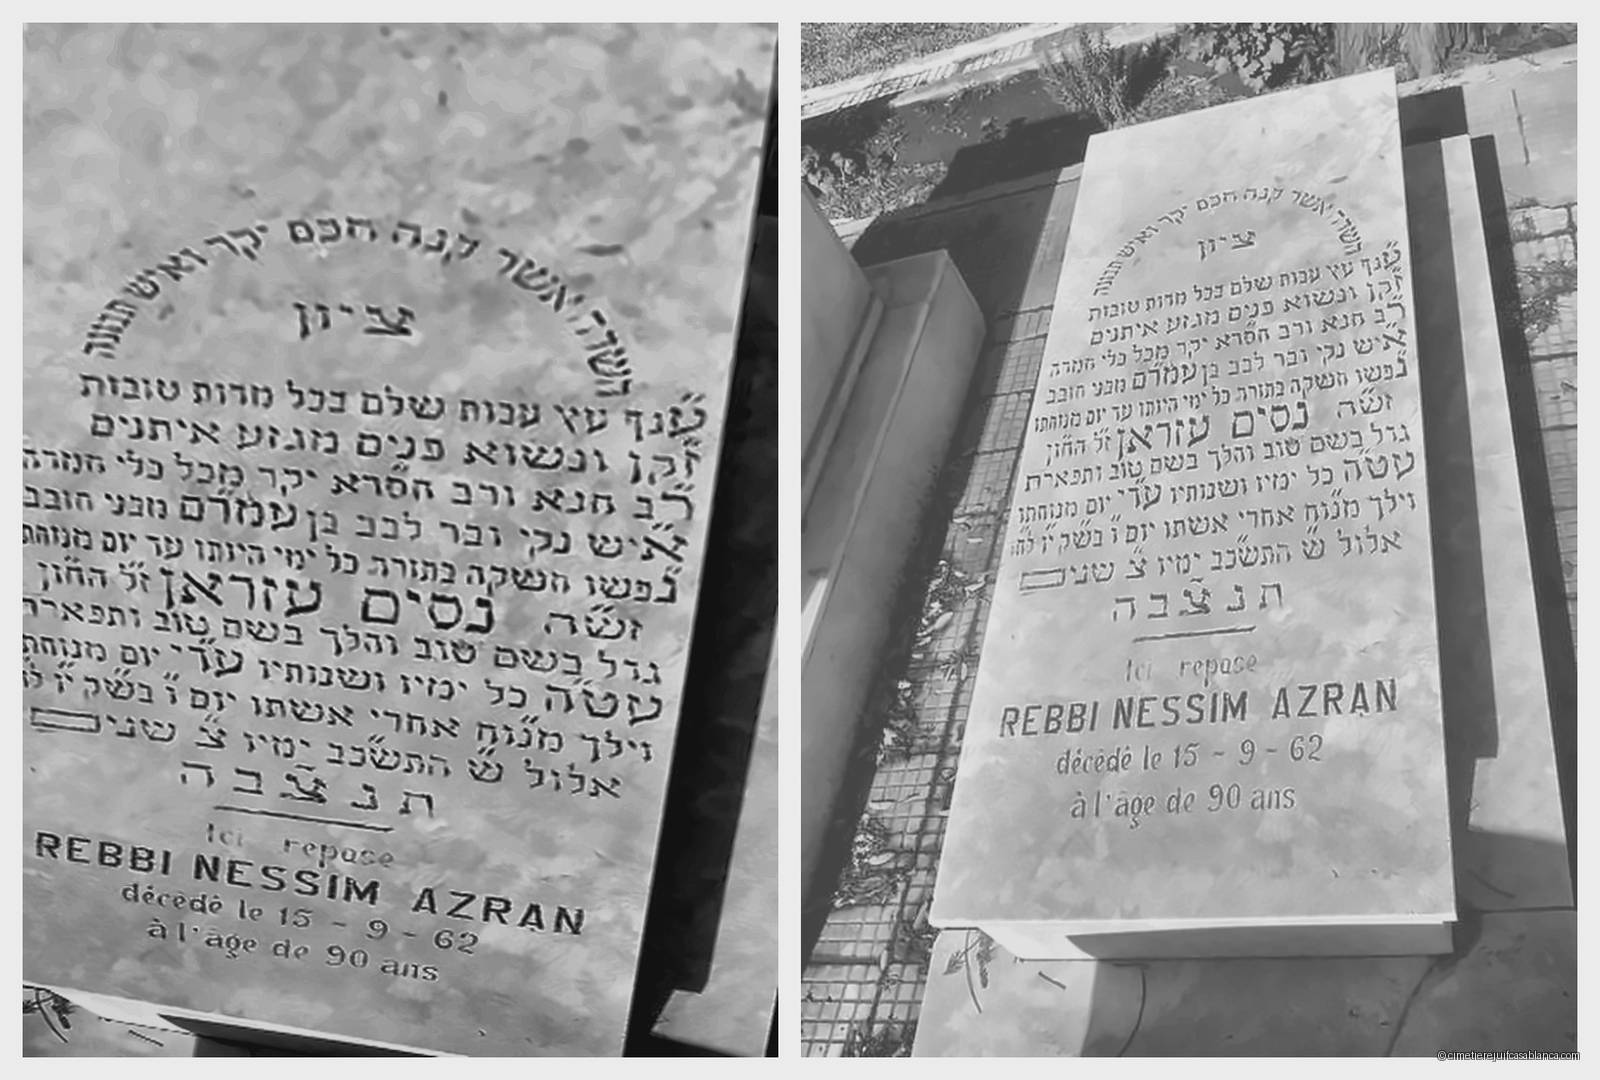 השדה אשר קנה חכם יקר ואיש תבונה
ציון
ש̈נף עץ עבות שלם בכל מדות טובות
ז̈קן ונשוא פנים מגזע איתנים
ר̈ב חנא ורב חסדא יקר מכל כלי חמדה
א̈יש נקי ובר לבב בן עמרם מבני חובב
נ̈פשו חשקה בתורה כל ימי היותו עד יום מנוחתו
זש״ה נסים עזראן ז״ל החזן
גדל בשם טוב והלך בשם טוב ותפארת
עט״ה כל ימיו ושנותיו עדי יום מנוחתו
וילך מנוח אחרי אשתו יום ו׳ בש״ק י״ז
אלול ש׳ התשכ״ב ימיו צ׳ שנים
תנצבה
Ici repose
REBBI NESSIM AZRAN
décédé le 15 - 9 - 62
à l'âge de 90 ans
השדה אשר קנה חכם יקר ואיש תבונה
ציון
ש̈נף עץ עבות שלם בכל מדות טובות
ז̈קן ונשוא פנים מגזע איתנים
ר̈ב חנא ורב חסדא יקר מכל כלי חמדה
א̈יש נקי ובר לבב בן עמרם מבני חובב
נ̈פשו חשקה בתורה כל ימי היותו עד יום מנוחתו
זש״ה נסים עזראן ז״ל החזן
גדל בשם טוב והלך בשם טוב ותפארת
עט״ה כל ימיו ושנותיו עדי יום מנוחתו
וילך מנוח אחרי אשתו יום ו׳ בש״ק י״ז
אלול ש׳ התשכ״ב ימיו צ׳ שנים
תנצבה
Ici repose
REBBI NESSIM AZRAN
décédé le 15 - 9 - 62
à l'âge de 90 ans
©cimetierejuifcasablanca.com